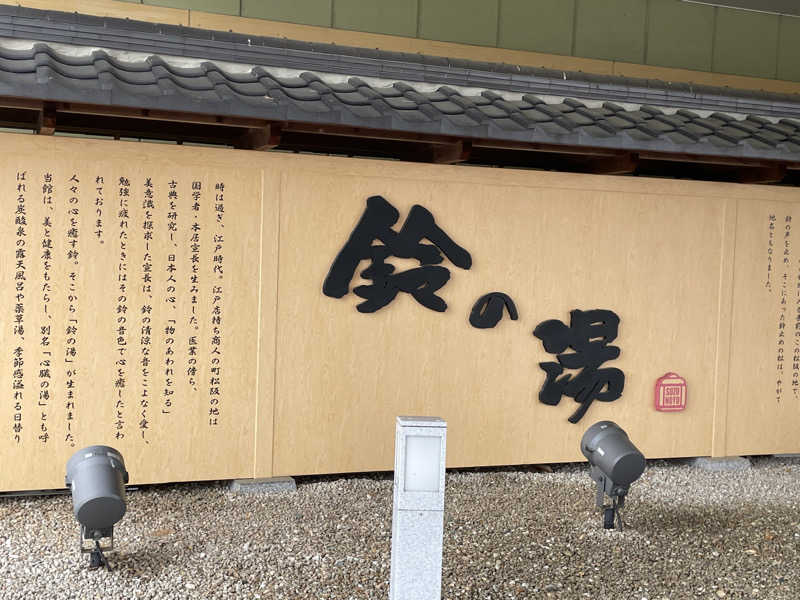 鈴の声を止め、そこにあった鈴止めの松は、やがて
地名ともなりました。
鈴の湯
SUZU
NOYU
時は過ぎ、江戸時代。江戸店持ち商人の町松阪の地は
国学者・本居宣長を生みました。医業の傍ら、
古典を研究し、日本人の心、「物のあわれを知る」
美意識を探求した宣長は、鈴の清涼な音をこよなく愛し、
勉強に疲れたときにはその鈴の音色で心を癒したと言わ
れております。
人々の心を癒す鈴。そこから「鈴の湯」が生まれました。
当館は、美と健康をもたらし、別名「心臓の湯」とも呼
ばれる炭酸泉の露天風呂や薬草湯、季節感溢れる日替り